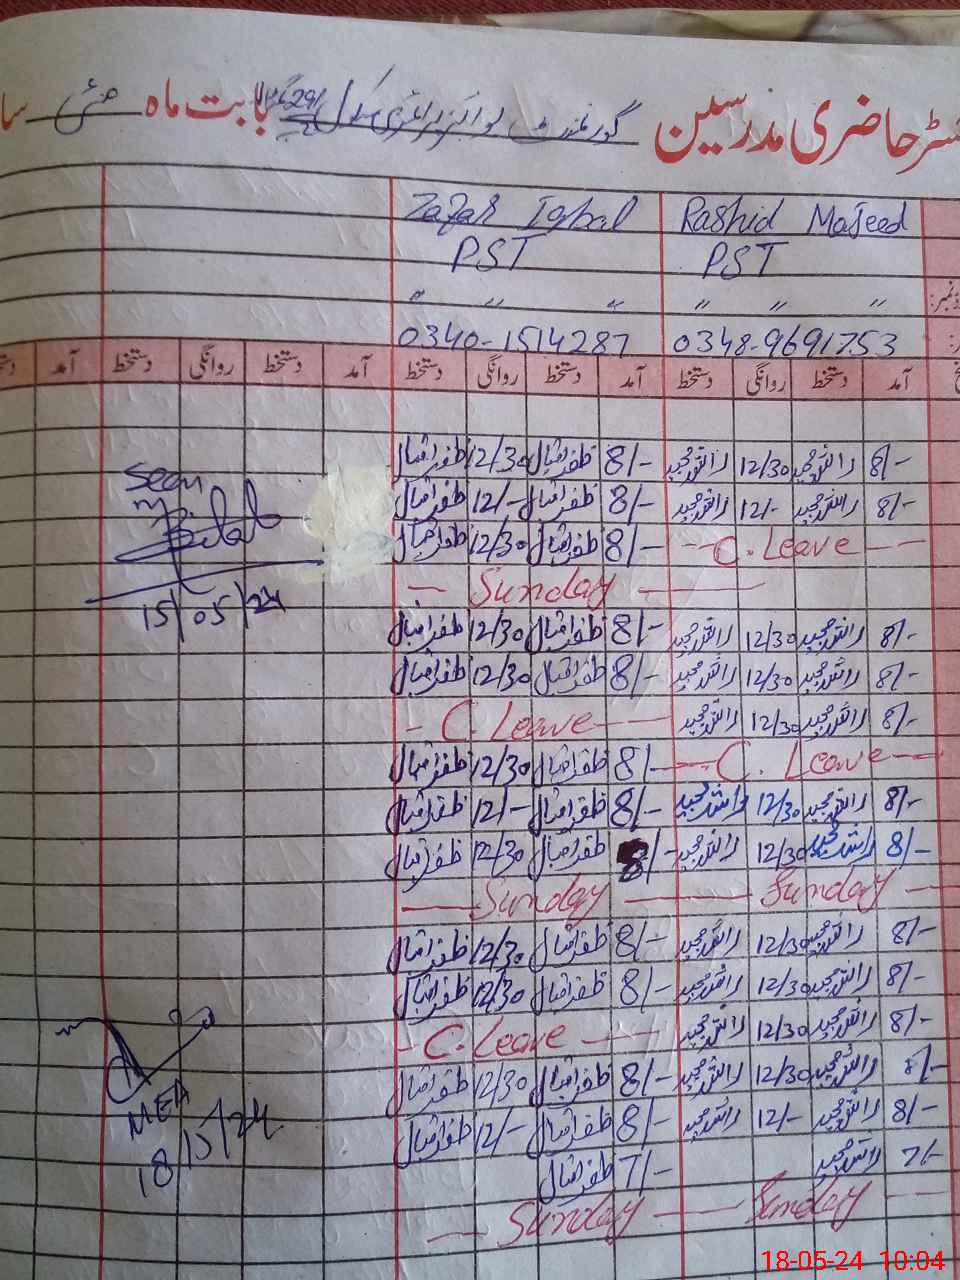 رجسٹر حاضری مدرسین گورنمنٹ بوائز پرائمری سکول بابت ماہ مئی
Zafar Iqbal Rashid Majeed
PST PST
" " " " " "
0340-1514287 0348-9691753
آمد دستخط روانگی دستخط آمد دستخط روانگی دستخط آمد دستخط روانگی دستخط آمد
8/- راشد مجید 12/30 راشد مجید 8/- ظفر اقبال 12/30 ظفر اقبال
8/- راشد مجید 12/- راشد مجید 8/- ظفر اقبال 12/- ظفر اقبال
C. Leave 8/- ظفر اقبال 12/30 ظفر اقبال
Sunday
8/- راشد مجید 12/30 راشد مجید 8/- ظفر اقبال 12/30 ظفر اقبال
8/- راشد مجید 12/30 راشد مجید 8/- ظفر اقبال 12/30 ظفر اقبال
8/- راشد مجید 12/30 راشد مجید C. Leave
C. Leave 8/- ظفر اقبال 12/30 ظفر اقبال
8/- راشد مجید 12/30 راشد مجید 8/- ظفر اقبال 12/- ظفر اقبال
8/- راشد مجید 12/30 راشد مجید 8/- ظفر اقبال 12/30 ظفر اقبال
Sunday Sunday
8/- راشد مجید 12/30 راشد مجید 8/- ظفر اقبال 12/30 ظفر اقبال
8/- راشد مجید 12/30 راشد مجید 8/- ظفر اقبال 12/30 ظفر اقبال
8/- راشد مجید 12/30 راشد مجید C. Leave
8/- راشد مجید 12/30 راشد مجید 8/- ظفر اقبال 12/30 ظفر اقبال
8/- راشد مجید 12/- راشد مجید 8/- ظفر اقبال 12/- ظفر اقبال
7/- راشد مجید 7/- ظفر اقبال
Sunday Sunday
Seen
15/05/24
MEA
18/5/24
18-05-24 10:04